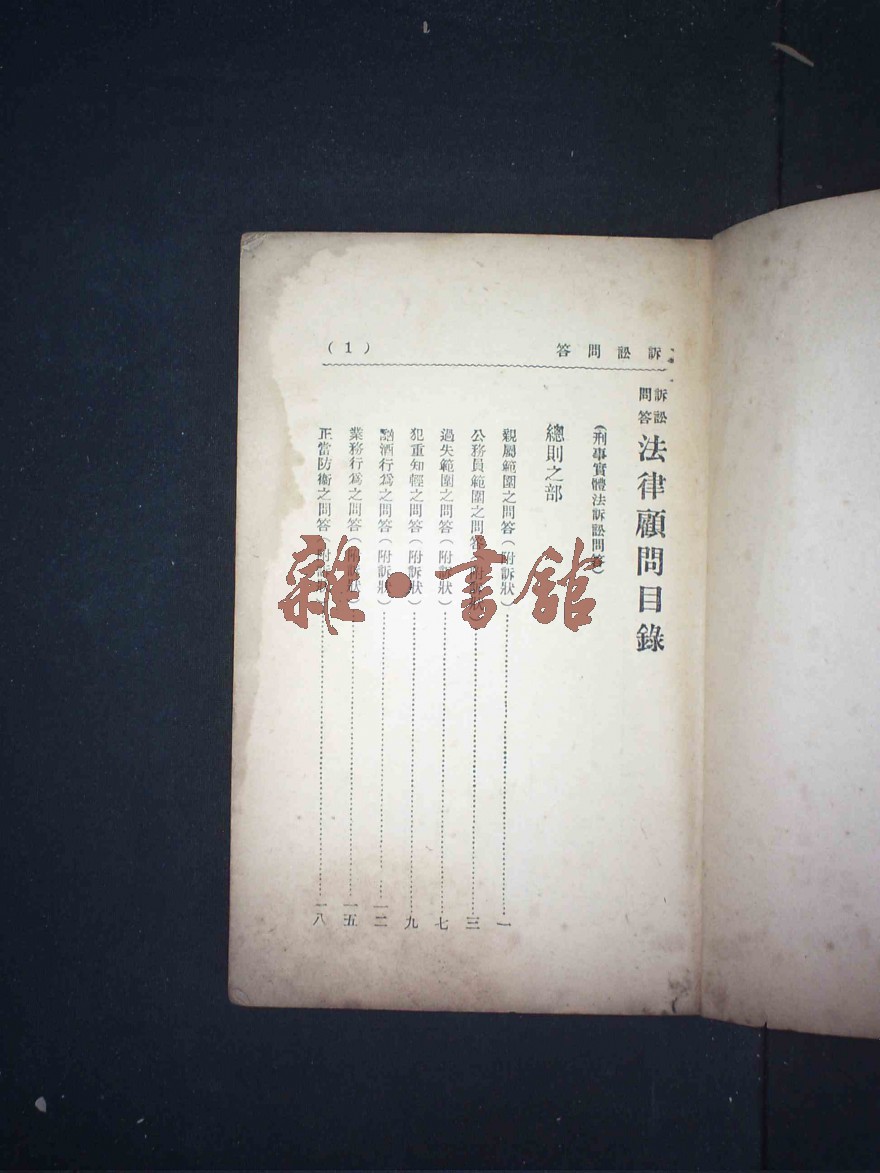 訴訟問答
(1)
訴訟問答 法律顧問目錄
(刑事實體法訴訟問答)
總則之部
親屬範圍之問答(附訴狀)……一
公務員範圍之問答(附訴狀)……三
過失範圍之問答(附訴狀)……七
犯重知輕之問答(附訴狀)……九
酗酒行爲之問答(附訴狀)……一二
業務行爲之問答(附訴狀)……一五
正當防衞之問答(附訴狀)……一八
雜·書館